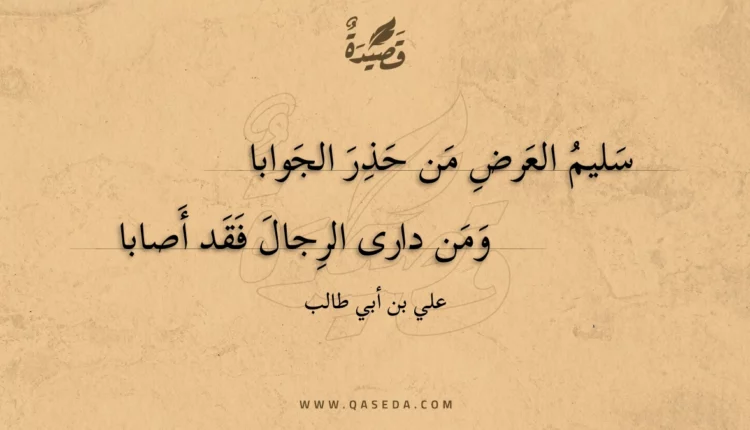 قَصِيْدَةٌ
سَليمُ العَرضِ مَن حَذِرَ الجَوابا
وَمَن دارى الرِجالَ فَقَد أَصابا
علي بن أبي طالب
WWW.QASEDA.COM